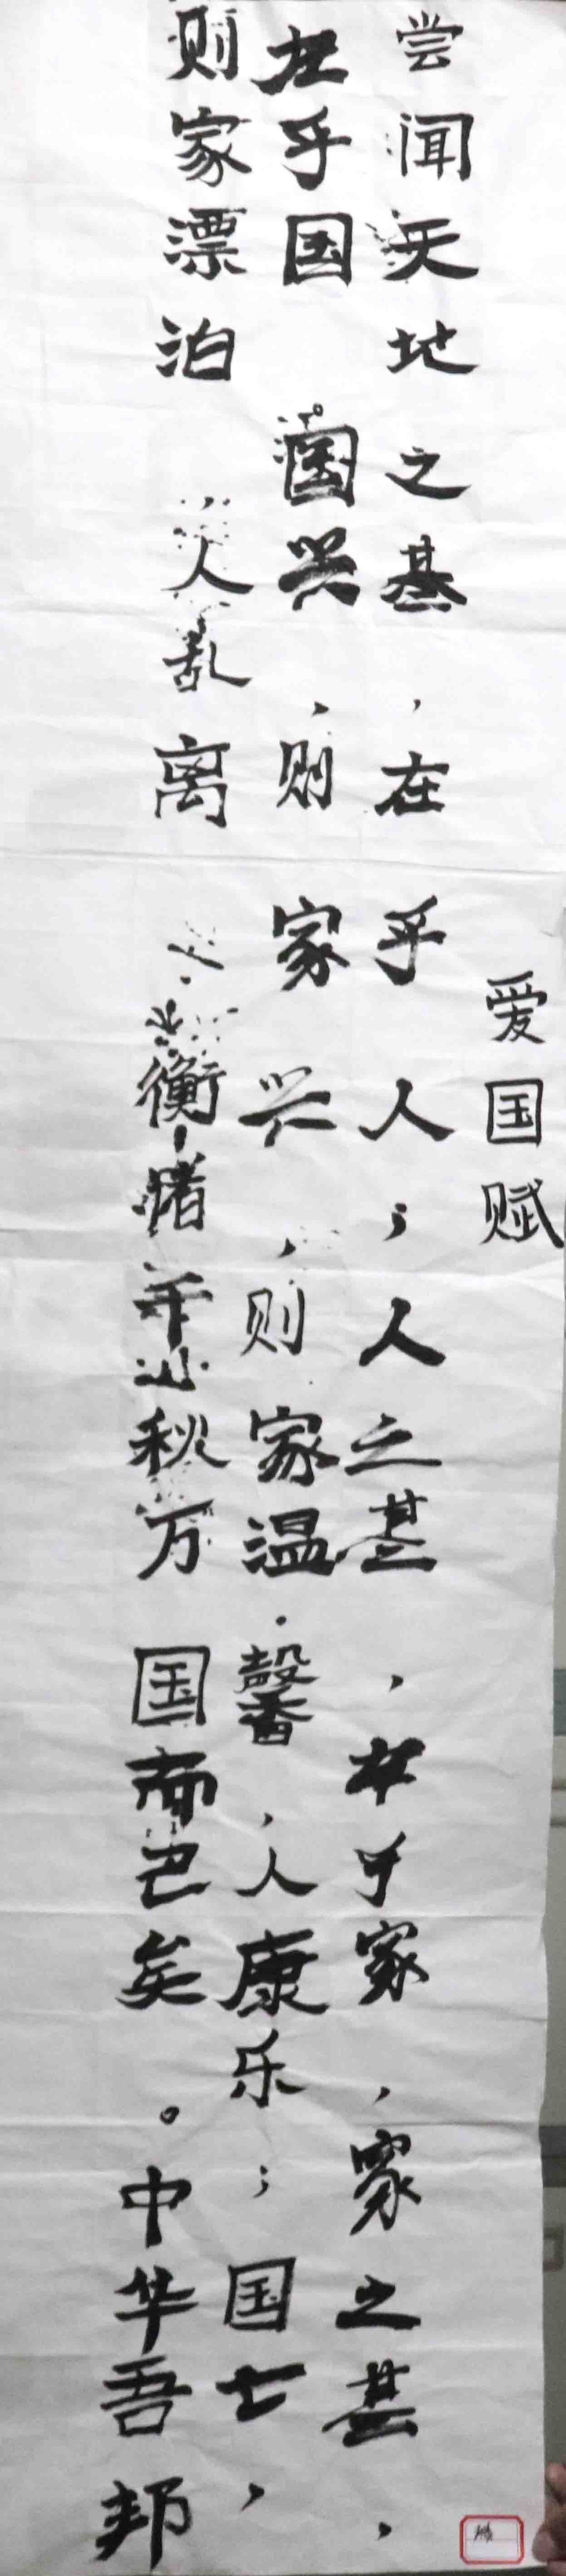 爱国赋
尝闻天地之基，在乎人；人之基，在乎家，家之基，
在乎国。国兴，则家兴，则家温馨，人康乐；国亡，
则家漂泊，人乱离。衡睹千秋万国而已矣。中华吾邦